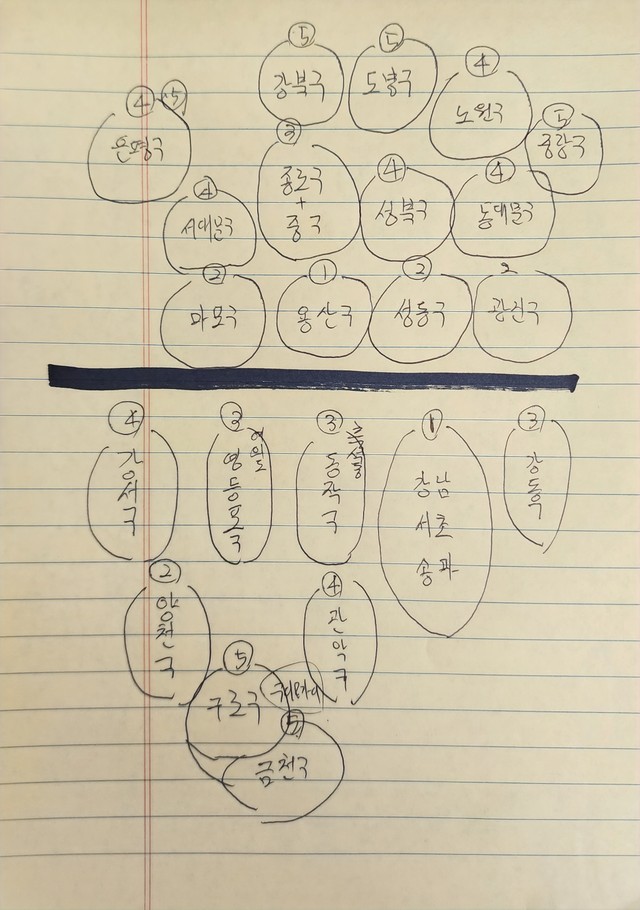 ⑤ ⑤
강북구 도봉구
④
노원구
④ ⑤
은평구
⑤
중랑구
③
종로구
+
중구
④
성북구
④
동대문구
④
서대문구
②
마포구
①
용산구
②
성동구
2
광진구
④
강서구
③
영등포구
여의도
③
동작구
흑석동
①
강남
서초
송파
③
강동구
②
양천구
④
관악구
⑤
구로구
⑤
금천구